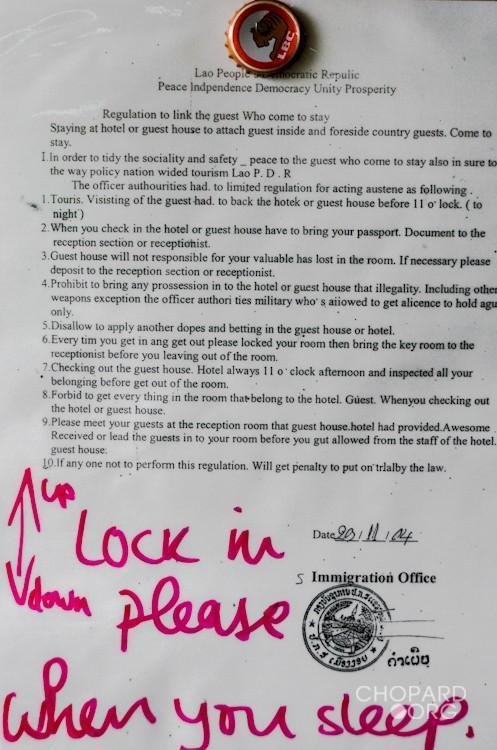 LBC
Lao People's Democratic Repulic
Peace Indpendence Democracy Unity Prosperity
Regulation to link the guest Who come to stay
Staying at hotel or guest house to attach guest inside and foreside country guests. Come to
stay.
I.In order to tidy the sociality and safety _ peace to the guest who come to stay also in sure to
the way policy nation wided tourism Lao P. D . R
The officer authourities had. to limited regulation for acting austene as following .
1.Touris. Visisting of the guest had. to back the hotek or guest house before 11 o' lock. ( to
night )
2.When you check in the hotel or guest house have to bring your passport. Document to the
reception section or receptionist.
3.Guest house will not responsible for your valuable has lost in the room. If necessary please
deposit to the reception section or receptionist.
4.Prohibit to bring any prossession in to the hotel or guest house that illegality. Including other
weapons exception the officer authori ties military who's aiiowed to get alicence to hold agu
only.
5.Disallow to apply another dopes and betting in the guest house or hotel.
6.Every tim you get in ang get out please locked your room then bring the key room to the
receptionist before you leaving out of the room.
7.Checking out the guest house. Hotel always 11 o' clock afternoon and inspected all your
belonging before get out of the room.
8.Forbid to get every thing in the room that belong to the hotel. Guest. Whenyou checking out
the hotel or guest house.
9.Please meet your guests at the reception room that guest house.hotel had provided.Awesome
Received or lead the guests in to your room before you gut allowed from the staff of the hotel.
guest house.
10.If any one not to perform this regulation. Will get penalty to put on trlalby the law.
Date 29/11/04
Immigration Office
up
down
Lock in
please
when you sleep.
ຄຳເພັຍ
CHOPARD
ORG